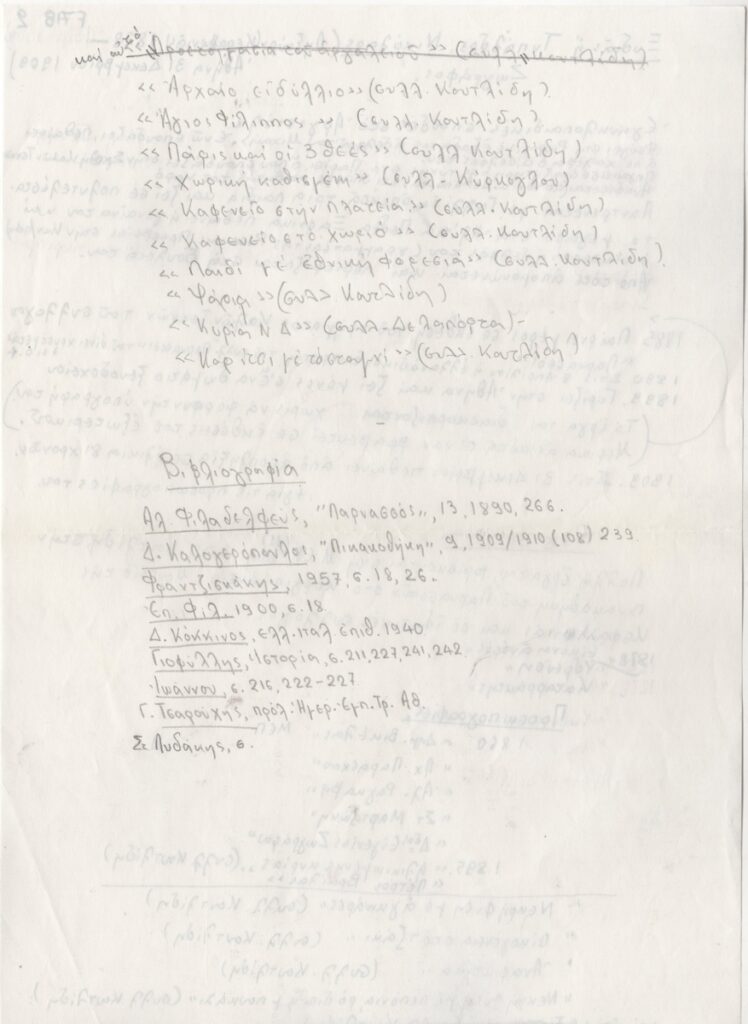 και αυτό « Προετοιμασία του αργαλειού » (συλλ. Κουτλίδη)
« Αρχαίο ειδύλλιο » (συλλ. Κουτλίδη)
« Άγιος Φίλιππος » (συλλ. Κουτλίδη)
« Πάρις και οι 3 θεές » (συλλ Κουτλίδη)
« Χωρική καθισμένη » (συλλ - Κύρκογλου)
« Καφενείο στην πλατεία » (συλλ. Κουτλίδη)
« Καφενείο στο χωριό » (συλλ. Κουτλίδη)
« Παιδί με εθνική φορεσιά » (συλλ. Κουτλίδη).
« Ψάρια » (συλλ. Κουτλίδη)
« Κυρία Ν Δ » (συλλ - Δελαπόρτα) -
« Κορίτσι με το σταμνί » (συλλ. Κουτλίδη)
Βιβλιογραφία
Αλ. Φιλαδελφεύς, "Παρνασσός", 13, 1890, 266.
Δ. Καλογερόπουλος, "Πινακοθήκη", 9, 1909/1910 (108) 239
Φραντζισκάκης, 1957, σ. 18, 26.
Επ. Φιλ. 1900, σ. 18
Δ. Κόκκινος, Ελλ. ιταλ επιθ. 1940
Γιοφύλλης, Ιστορία, σ. 211, 227, 241, 242
Ιωάννου, σ. 216, 222-227
Γ. Τσαρούχης, πρόλ. Ημερ. Εμπ. Τρ. Αθ.
Σ. Λυδάκης, σ.